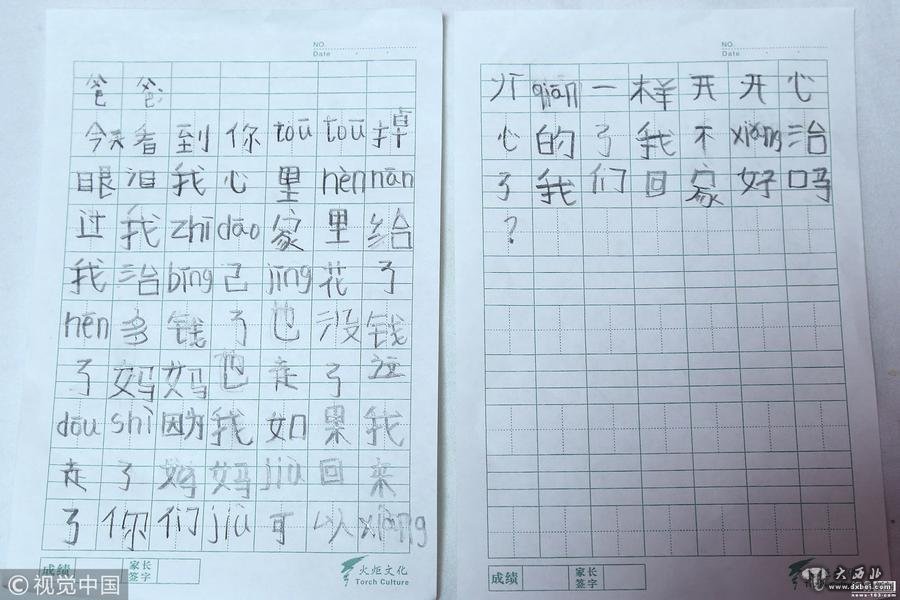 NO.
Date
爸爸
今天看到你tōu tōu掉
眼泪我心里hěn nán
过我zhī dào家里给
我治bìng己jīng花了
hěn多钱了也没钱
了妈妈也走了这
dōu shì因为我如果我
走了妈妈jiù回来
了你们jiù可以xiàng
成绩
家长
签字
火炬文化
Torch Culture
NO.
Date
qián一样开开心
心的了我不xiǎng治
了我们回家好吗
?
成绩
家长
签字
©视觉中国
大西北
www.dxbei.com